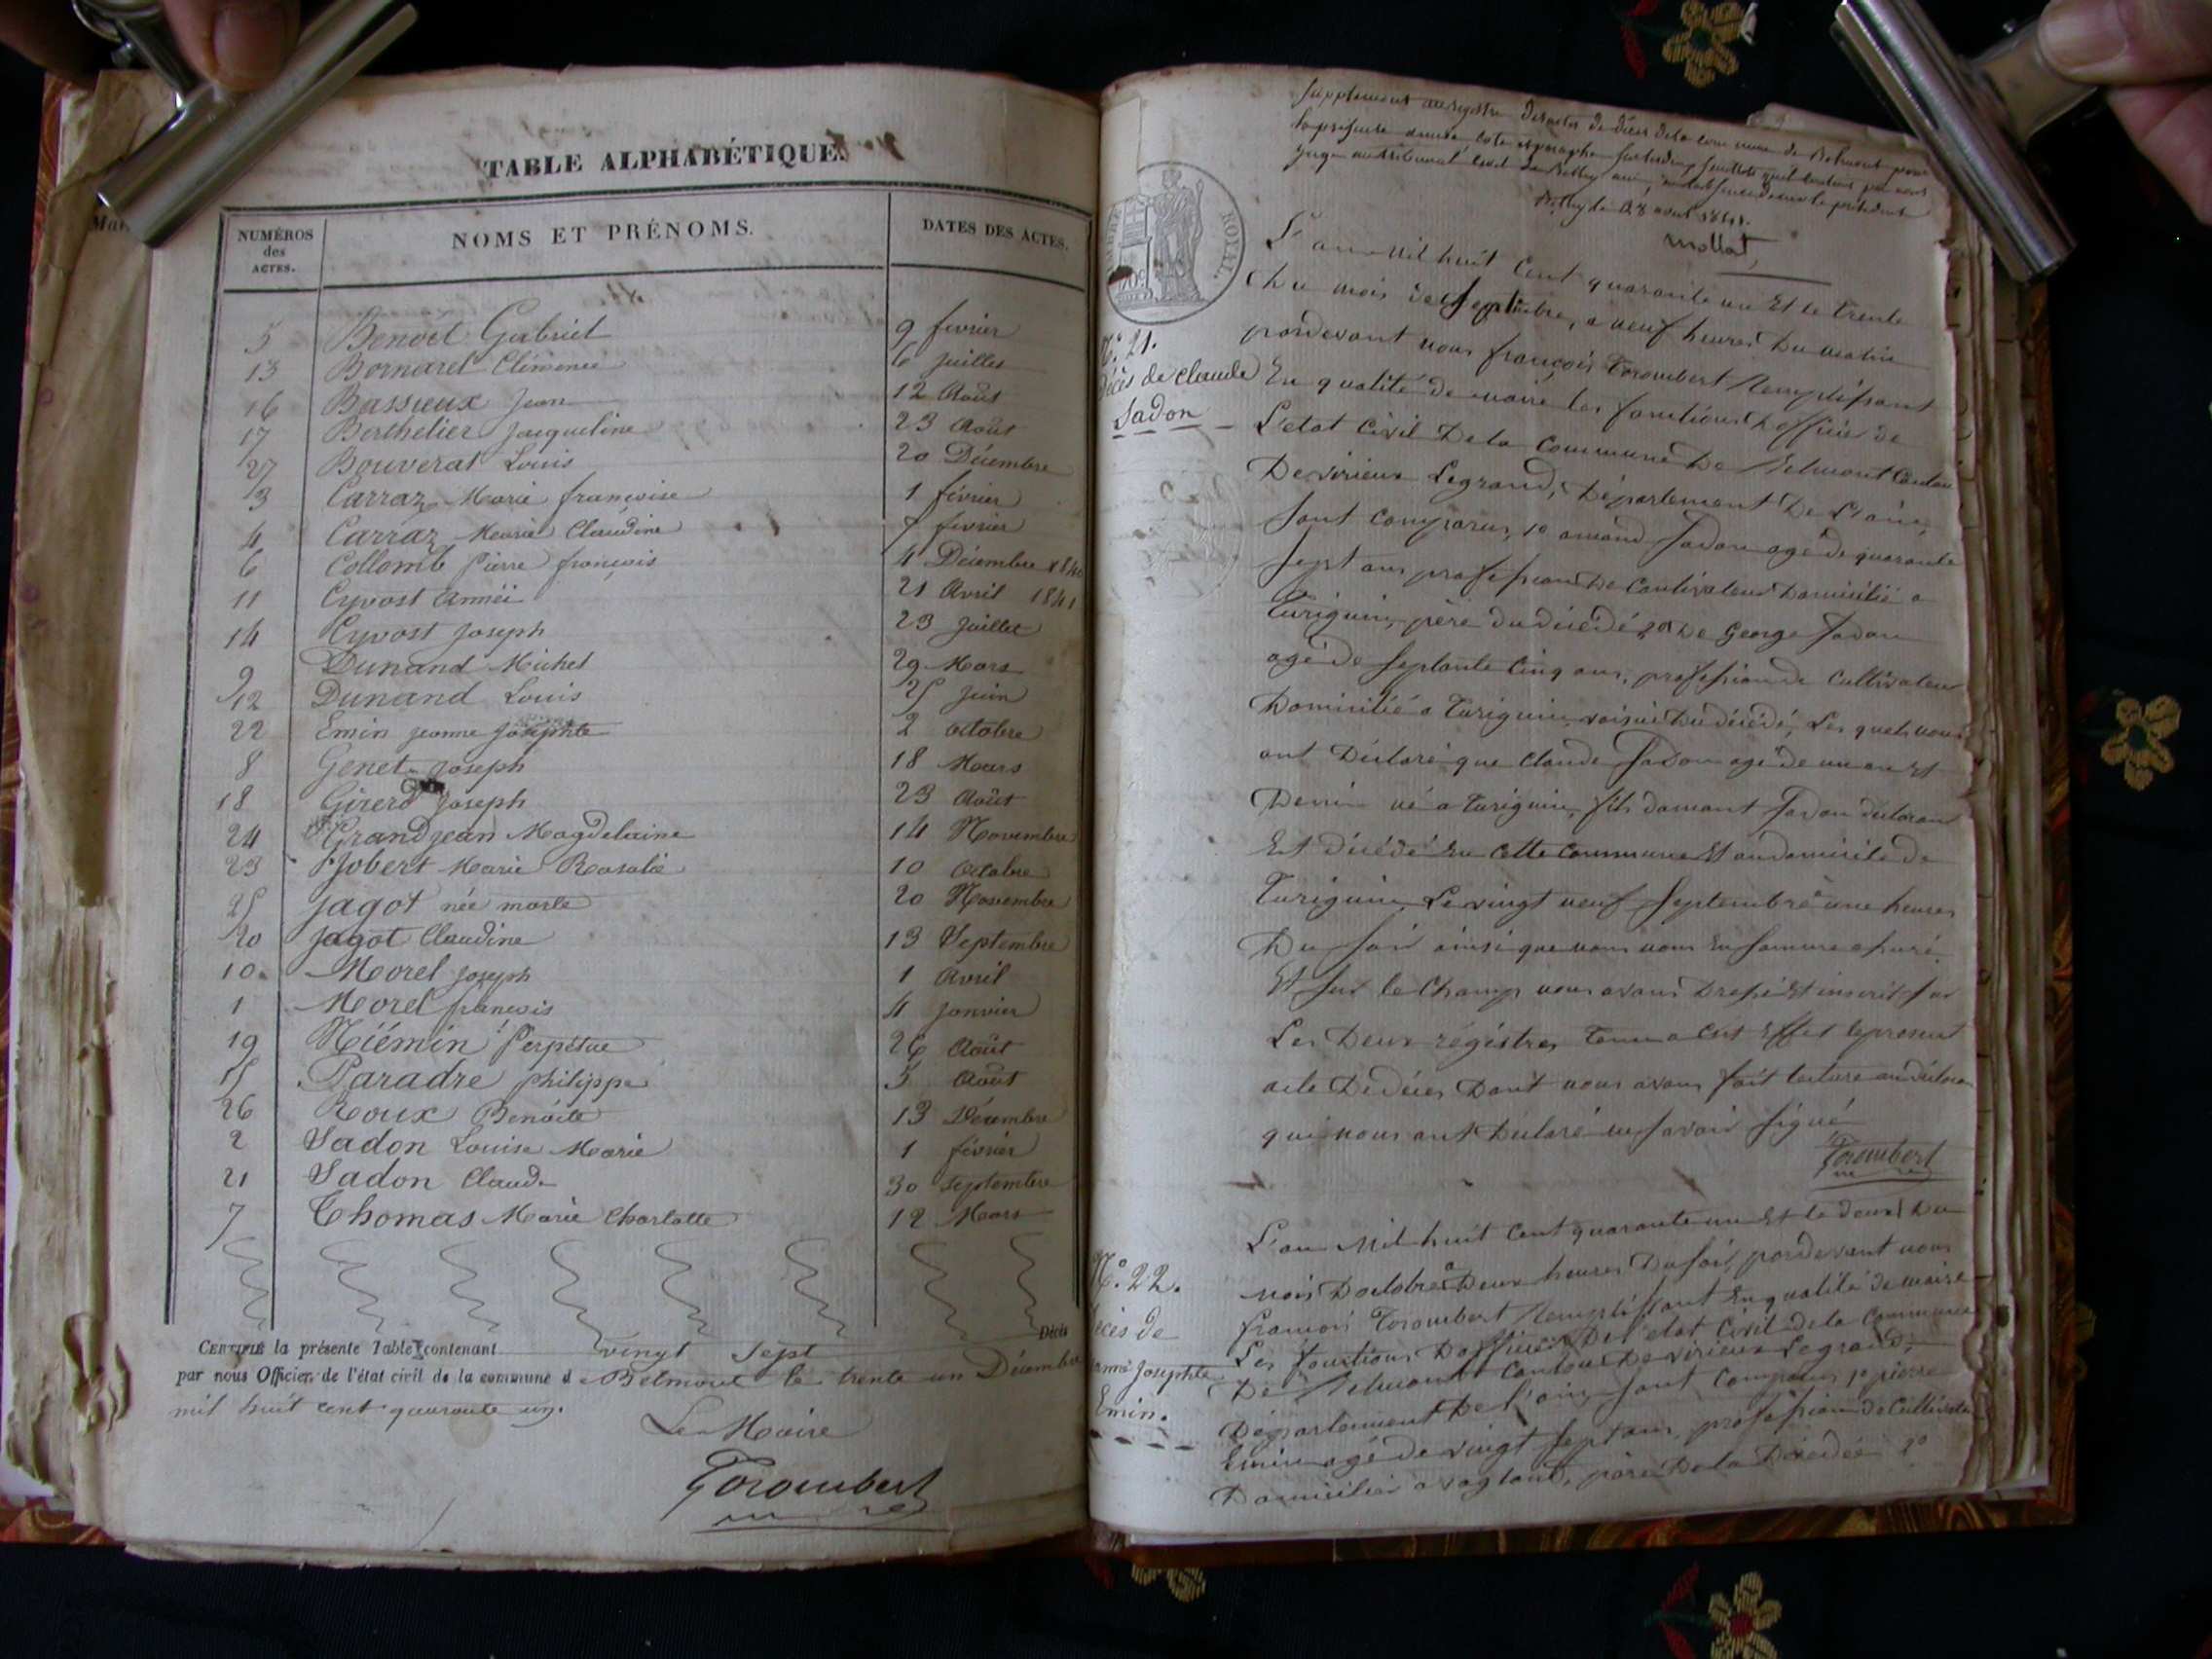 TABLE ALPHABÉTIQUE.
NUMÉROS des ACTES. NOMS ET PRÉNOMS. DATES DES ACTES.
5 Benoet Gabriel 9 février
13 Bornarel Clémence 6 Juillet
16 Bassieux Jean 12 Août
17 Berthelier Jacqueline 23 Août
27 Bouverat Louis 20 Décembre
3 Carraz Marie françoise 1 février
4 Carraz Marie Claudine 7 février
6 Collomb Pierre françois 4 Décembre 1840
11 Cyvost 21 Avril 1841
14 Cyvost Joseph 23 Juillet
9 Dunand Michel 29 Mars
12 Dunand Louis 25 Juin
22 Emin jeanne Josephte 2 octobre
8 Genet Joseph 18 Mars
18 Girerd Joseph 23 Août
24 Grandjean Magdelaine 14 Novembre
23 Jobert Marie Rosalie 10 Octobre
25 Jagot née morte 20 Novembre
20 Jagot Claudine 13 Septembre
10 Morel Joseph 1 Avril
1 Morel françois 4 Janvier
19 Niémin Perpétue 26 Août
15 Paradre philippe 5 Août
26 Roux Benoite 13 Décembre
2 Sadon Louise Marie 1 février
21 Sadon Claude 30 Septembre
7 Thomas Marie Charlotte 12 Mars
Décès
CERTIFIÉ la présente Table contenant vingt sept
par nous Officier de l'état civil de la commune d Belmont le trente un Décembre
mil huit cent quarante un.
Le Maire
Gorombert
Supplement au registre des actes de décès de la commune de Belmont pour
la présente année coté et paraphé par nous
juge au tribunal civil de Belley
Belley le 28 avril 1841.
Mollat
TIMBRE ROYAL.
L'an mil huit cent quarante un Et le trente
Du mois de Septembre, a neuf heures Du matin
N.° 21.
pardevant nous françois Gorombert Remplissant
Décès de Claude
En qualité de maire les fonctions D'officier de
Sadon
L'etat Civil De la Commune De Belmont Canton
De virieux Legrand, Département De L'ain,
Sont Comparus, 1° amand Sadon agé de quarante
Sept ans profession De Cultivateur Domicilié a
Turignin, père du décédé 2° De George Sadon
agé De Septante Cinq ans, profession de Cultivateur
Domicilié a Turignin voisin Du décédé, Les quels nous
ont Déclaré que Claude Sadon agé de un an Et
Demi né a Turignin, fils damant Sadon
Est décédé En cette Commune Et au domicile De
Turignin Le vingt neuf Septembre a une heures
Du Soir ainsi que nous nous En Somme assuré.
Et Sur le Champ nous avons Dressé Et inscrit Sur
Les Deux régistres Tenu a Cet Effet le present
acte De décès Dont nous avons fait lecture
qui nous ont Déclaré ne Savoir Signé
Gorombert
L'an Mil huit Cent quarante un Et le Deux Du
N.° 22.
mois D'octobre a Deux heures Du Soir, pardevant nous
Décès de
françois Gorombert Remplissant En qualité de maire
Les fonctions D'officier De l'etat Civil de la Commune
Jeanne Josephte
De Belmont Canton De virieux Legrand,
Emin.
Département De l'ain, Sont Comparus 1° pierre
Emin agé de vingt Sept ans, profession de Cultivateur
Domicilié a vogland, père De la Décédée 2°